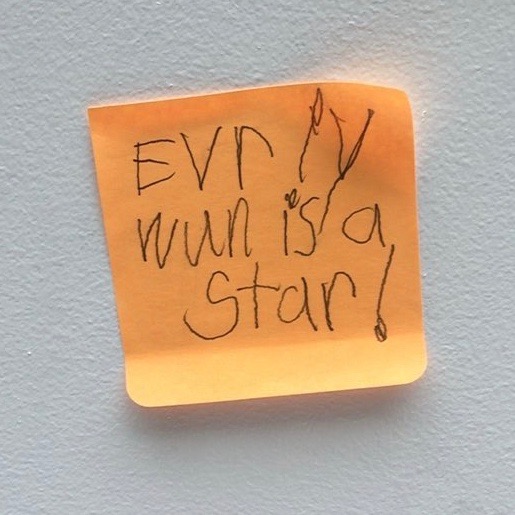 EVrly
wun is a
Star!